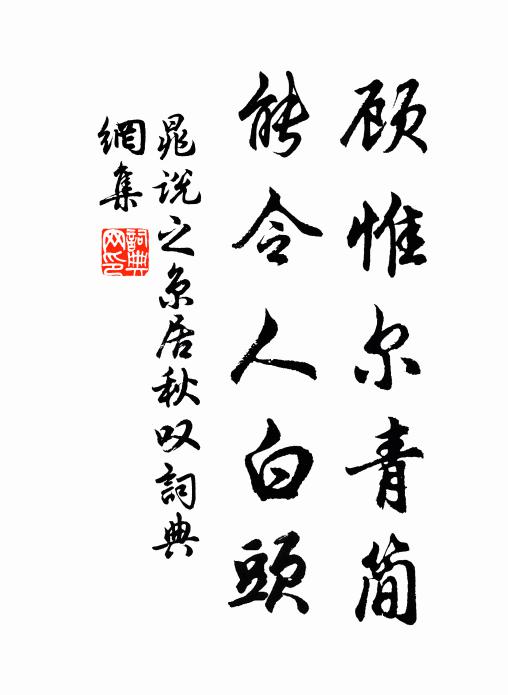 顾惟尔青简
能令人白頭
晁说之京居秋叹詞典
網集
詞典
网印